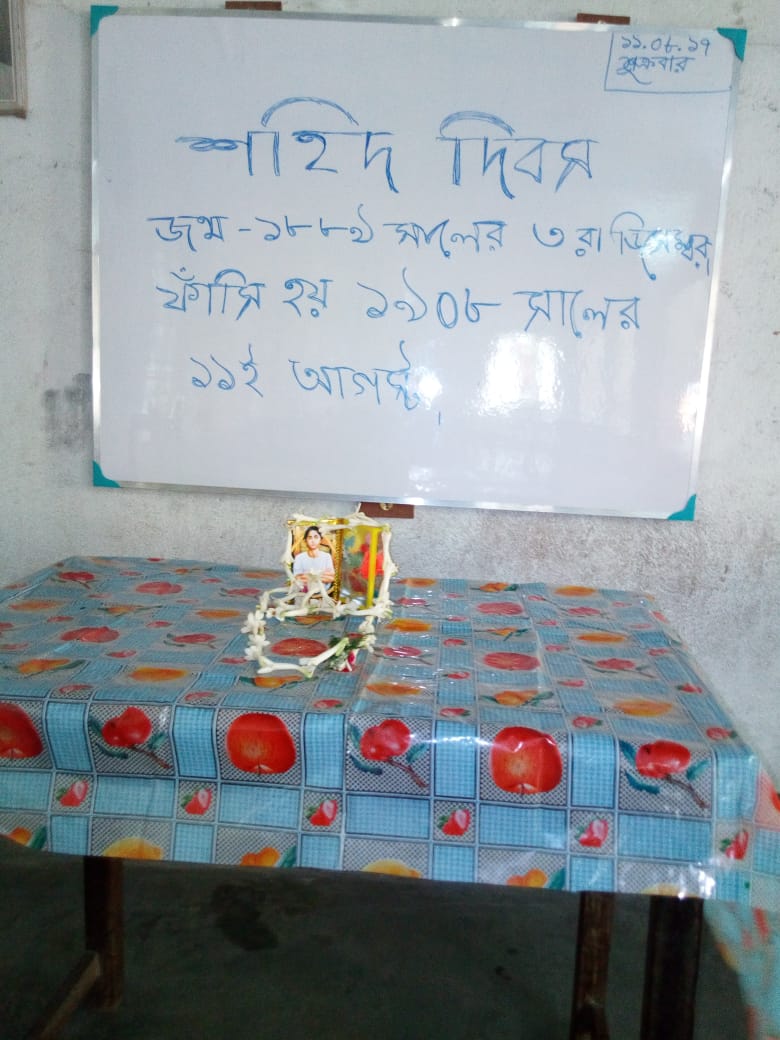 ১১.০৮.১৭
শুক্রবার
শহিদ দিবস
জন্ম - ১৮৮৯ সালের ৩ রা ডিসেম্বর,
ফাঁসি হয় ১৯০৮ সালের
১১ই আগস্ট,